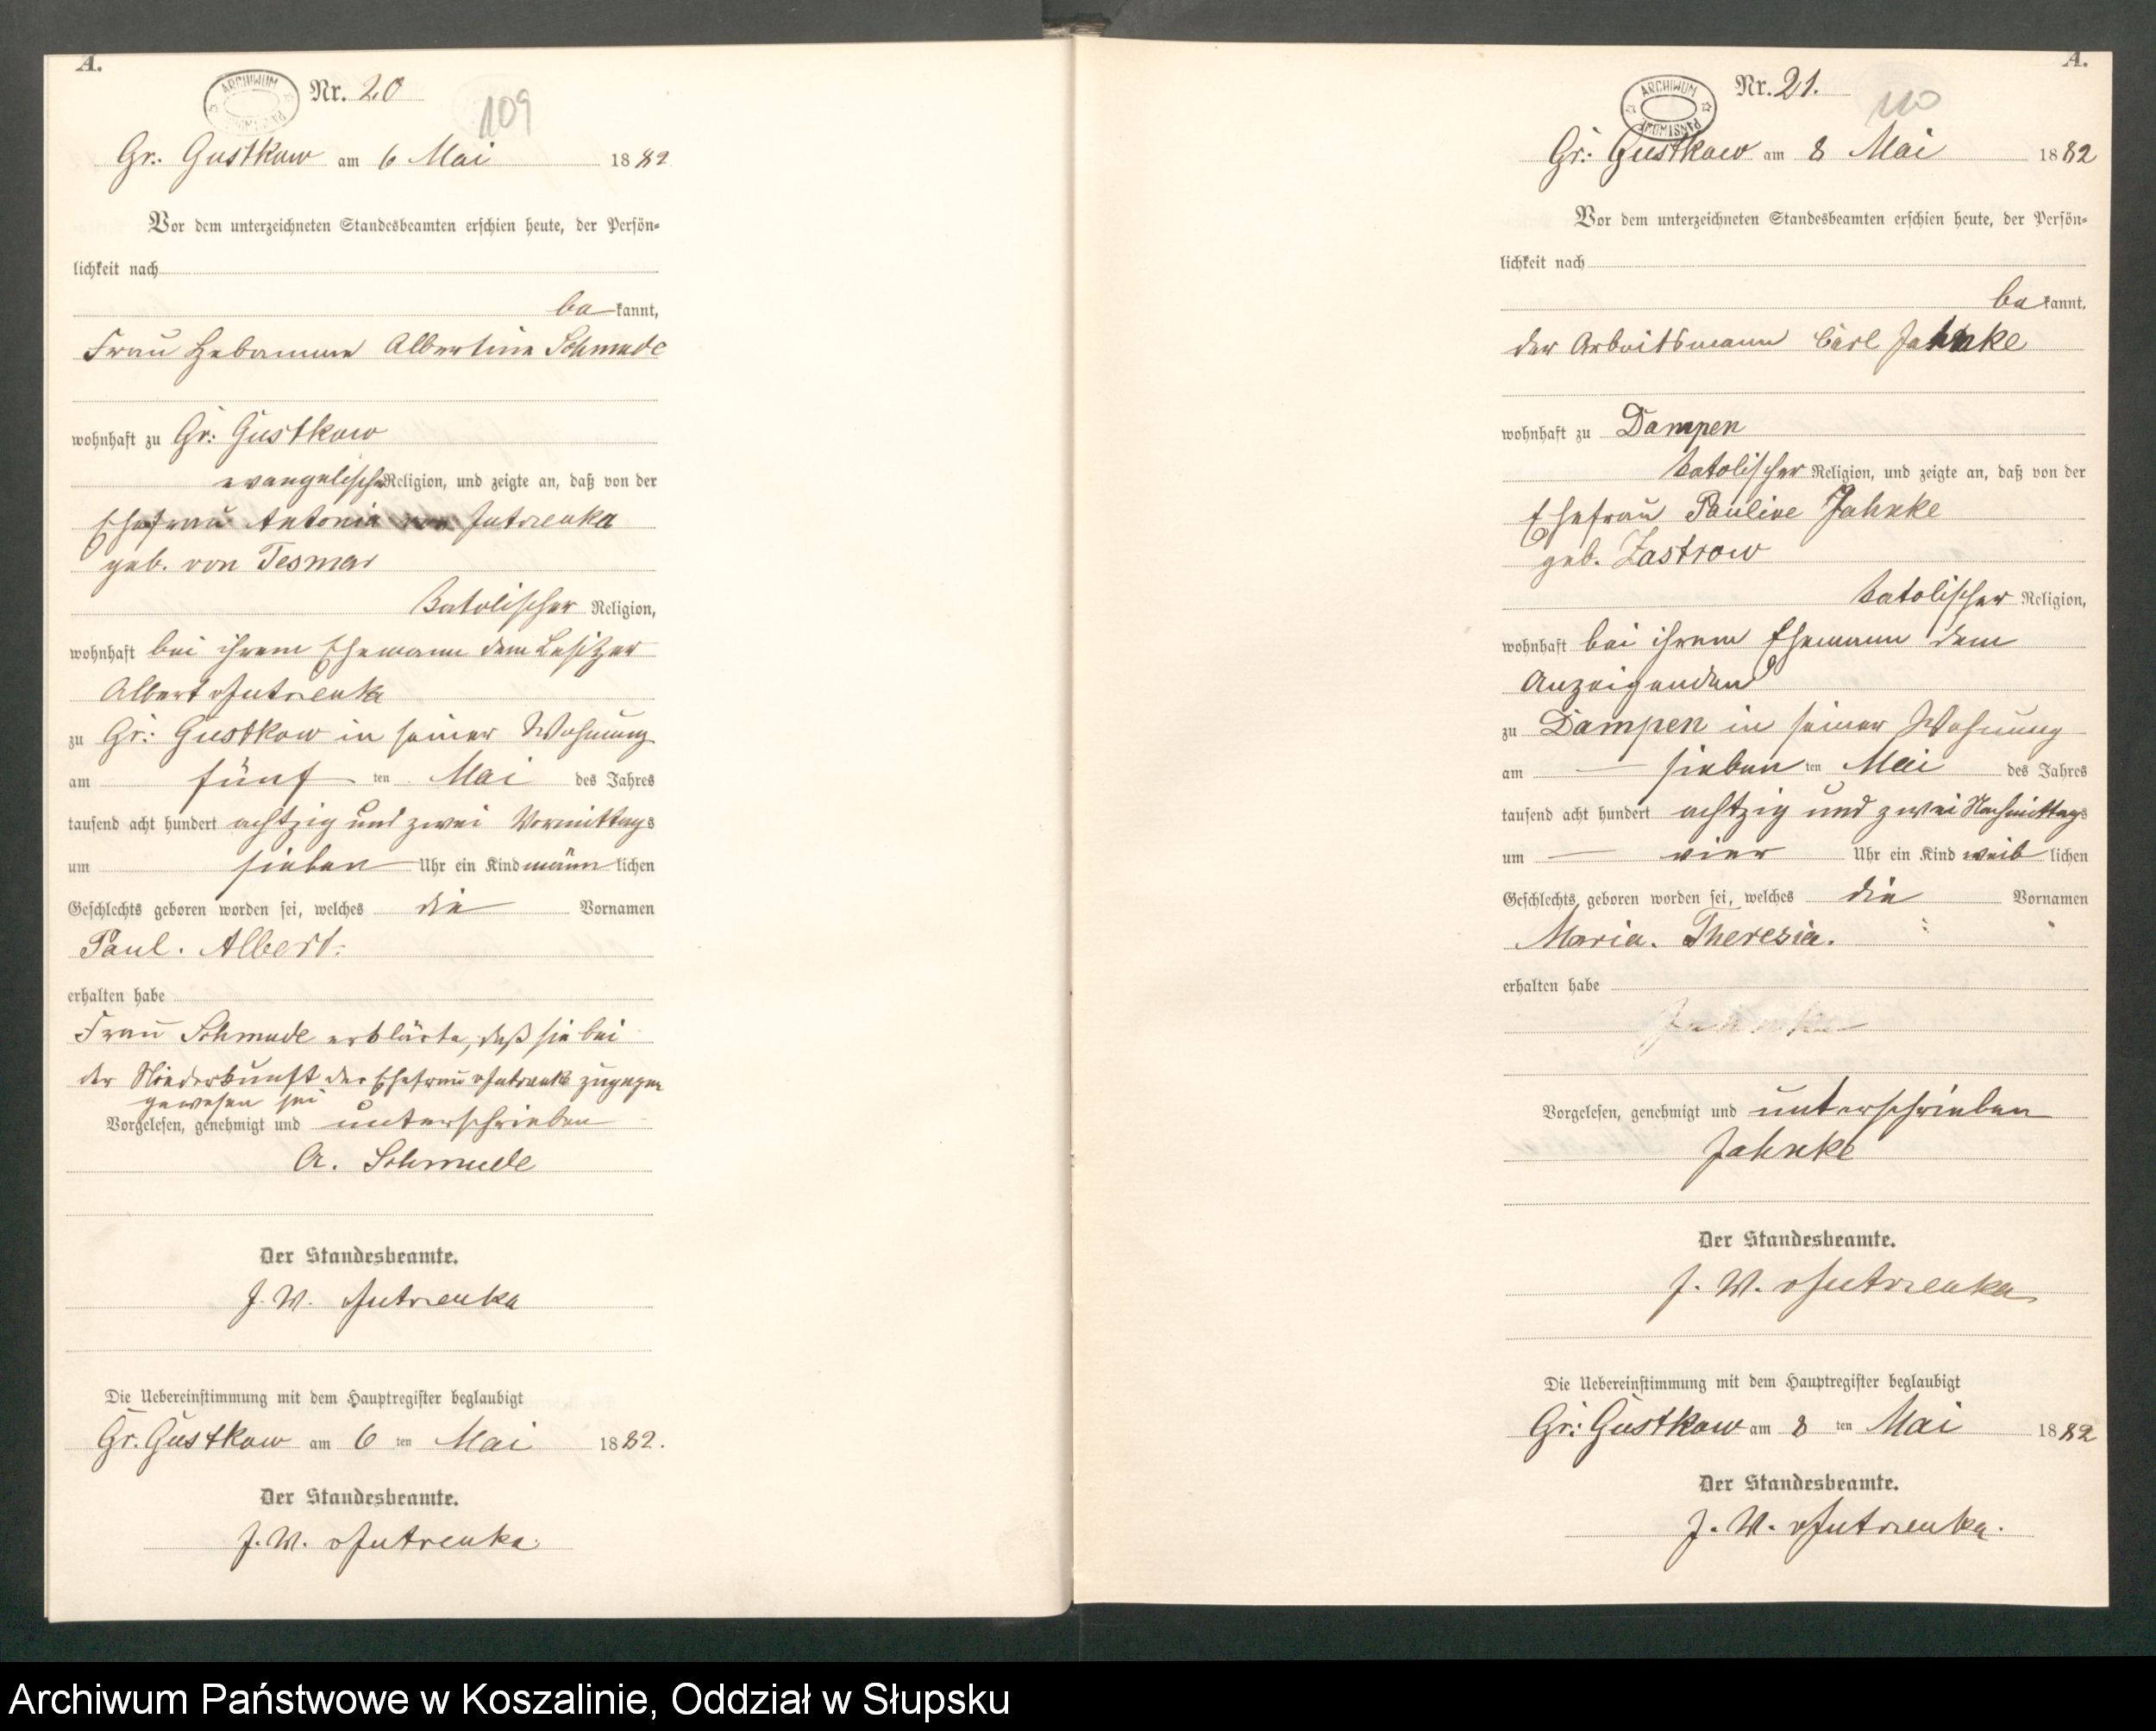 A.
ARCHIWUM
Nr. 20
109
Gr. Gustkow am 6 Mai 1882
Vor dem unterzeichneten Standesbeamten erschien heute, der Persön-
lichkeit nach
be kannt,
Frau Hebamme Albertine Schmude
wohnhaft zu Gr: Gustkow
evangelischer Religion, und zeigte an, daß von der
Ehefrau Antonia von Jutrzenka
geb. von Tesmar
katolischer Religion,
wohnhaft bei ihrem Ehemann dem Besitzer
Albert v Jutrzenka
zu Gr: Gustkow in seiner Wohnung
am fünf ten Mai des Jahres
tausend acht hundert achtzig und zwei Vormittags
um sieben Uhr ein Kind männ lichen
Geschlechts geboren worden sei, welches die Vornamen
Paul. Albert.
erhalten habe
Frau Schmude erklärte, daß sie bei
der Niederkunft der Ehefrau v Jutrzenka zugegen
gewesen sei
Vorgelesen, genehmigt und unterschrieben
A. Schmude
Der Standesbeamte.
J. W. v Jutrzenka
Die Uebereinstimmung mit dem Hauptregister beglaubigt
Gr. Gustkow am 6 ten Mai 1882.
Der Standesbeamte.
J. W. v Jutrzenka.
A.
ARCHIWUM PAŃSTWOWE
Nr. 21.
110
Gr: Gustkow am 8 Mai 1882
Vor dem unterzeichneten Standesbeamten erschien heute, der Persön-
lichkeit nach
be kannt,
der Arbeitsmann Carl Jahnke
wohnhaft zu Dampen
katolischer Religion, und zeigte an, daß von der
Ehefrau Pauline Jahnke
geb. Zastrow
katolischer Religion,
wohnhaft bei ihrem Ehemann dem
Anzeigenden
zu Dampen in seiner Wohnung
am sieben ten Mai des Jahres
tausend acht hundert achtzig und zwei Nachmittags
um vier Uhr ein Kind weib lichen
Geschlechts geboren worden sei, welches die Vornamen
Maria. Theresia.
erhalten habe
Vorgelesen, genehmigt und unterschrieben
Jahnke
Der Standesbeamte.
J. W. v Jutrzenka
Die Uebereinstimmung mit dem Hauptregister beglaubigt
Gr: Gustkow am 8 ten Mai 1882
Der Standesbeamte.
J. W. v Jutrzenka.
Archiwum Państwowe w Koszalinie, Oddział w Słupsku